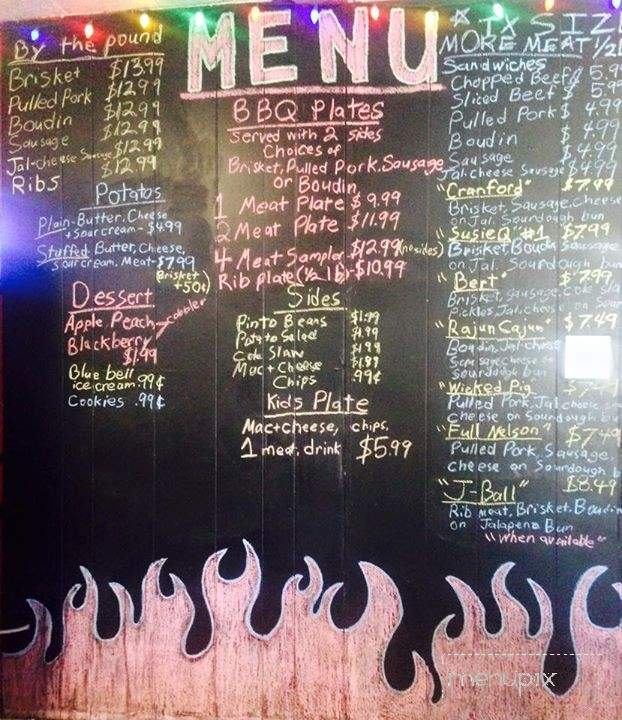 MENU
By the pound
Brisket $13.99
Pulled Pork $12.99
Boudin $12.99
Sausage $12.99
Jal-cheese Sausage $12.99
Ribs $12.99
Potatos
Plain-Butter, Cheese
+ Sour cream - $4.99
Stuffed: Butter, Cheese,
Sour cream, Meat-$7.99
(Brisket
+50¢)
Dessert
Apple, Peach cobbler
Blackberry
$1.99
Blue bell
ice cream .99¢
Cookies .99¢
BBQ Plates
Served with 2 sides
Choices of
Brisket, Pulled Pork, Sausage
or Boudin
1 Meat Plate $9.99
2 Meat Plate $11.99
4 Meat Sampler $12.99 (no sides)
Rib plate (½ lb) - $10.99
Sides
Pinto Beans $1.99
Potato Salad $1.99
Cole Slaw $1.99
Mac + Cheese $1.99
Chips .99¢
Kids Plate
Mac+cheese, chips,
1 meat, drink $5.99
*TX SIZ
MORE MEAT 1/2
Sandwiches
Chopped Beef $5.9
Sliced Beef $5.99
Pulled Pork $4.99
Boudin $4.99
Sausage $4.99
Jal. Cheese Sausage $4.99
"Cranford" $7.99
Brisket, Sausage, Cheese
on Jal. Sourdough bun
"SusieQ #1" $7.99
Brisket, Boudin, Sausage
on Jal. Sourdough bun
"Bert" $7.99
Brisket, Sausage, Cole Sla
Pickles, Jal. cheese on Sour
"Rajun Cajun" $7.49
Boudin, Jal-cheese
Sausage, Cheese on
Sourdough bun
"Wicked Pig" $7.49
Pulled Pork, Jal. cheese
cheese on Sourdough bu
"Full Nelson" $7.49
Pulled Pork, Sausage,
cheese on Sourdough b
"J-Ball" $8.49
Rib meat, Brisket, Boudin
on Jalapeno Bun
"when available"
menupix